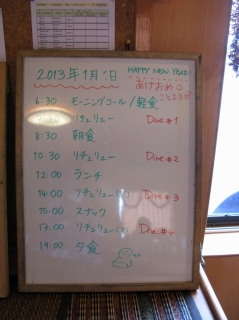 2013年1月1日
HAPPY NEW YEAR!
あけおめ
ことよろ
6:30 モーニングコール/軽食
リチェリュー Dive #1
8:30 朝食
10:30 リチェリュー Dive #2
12:00 ランチ
14:00 リチェリュー Dive #3
15:00 スナック
17:00 リチェリュー Dive #4
19:00 夕食